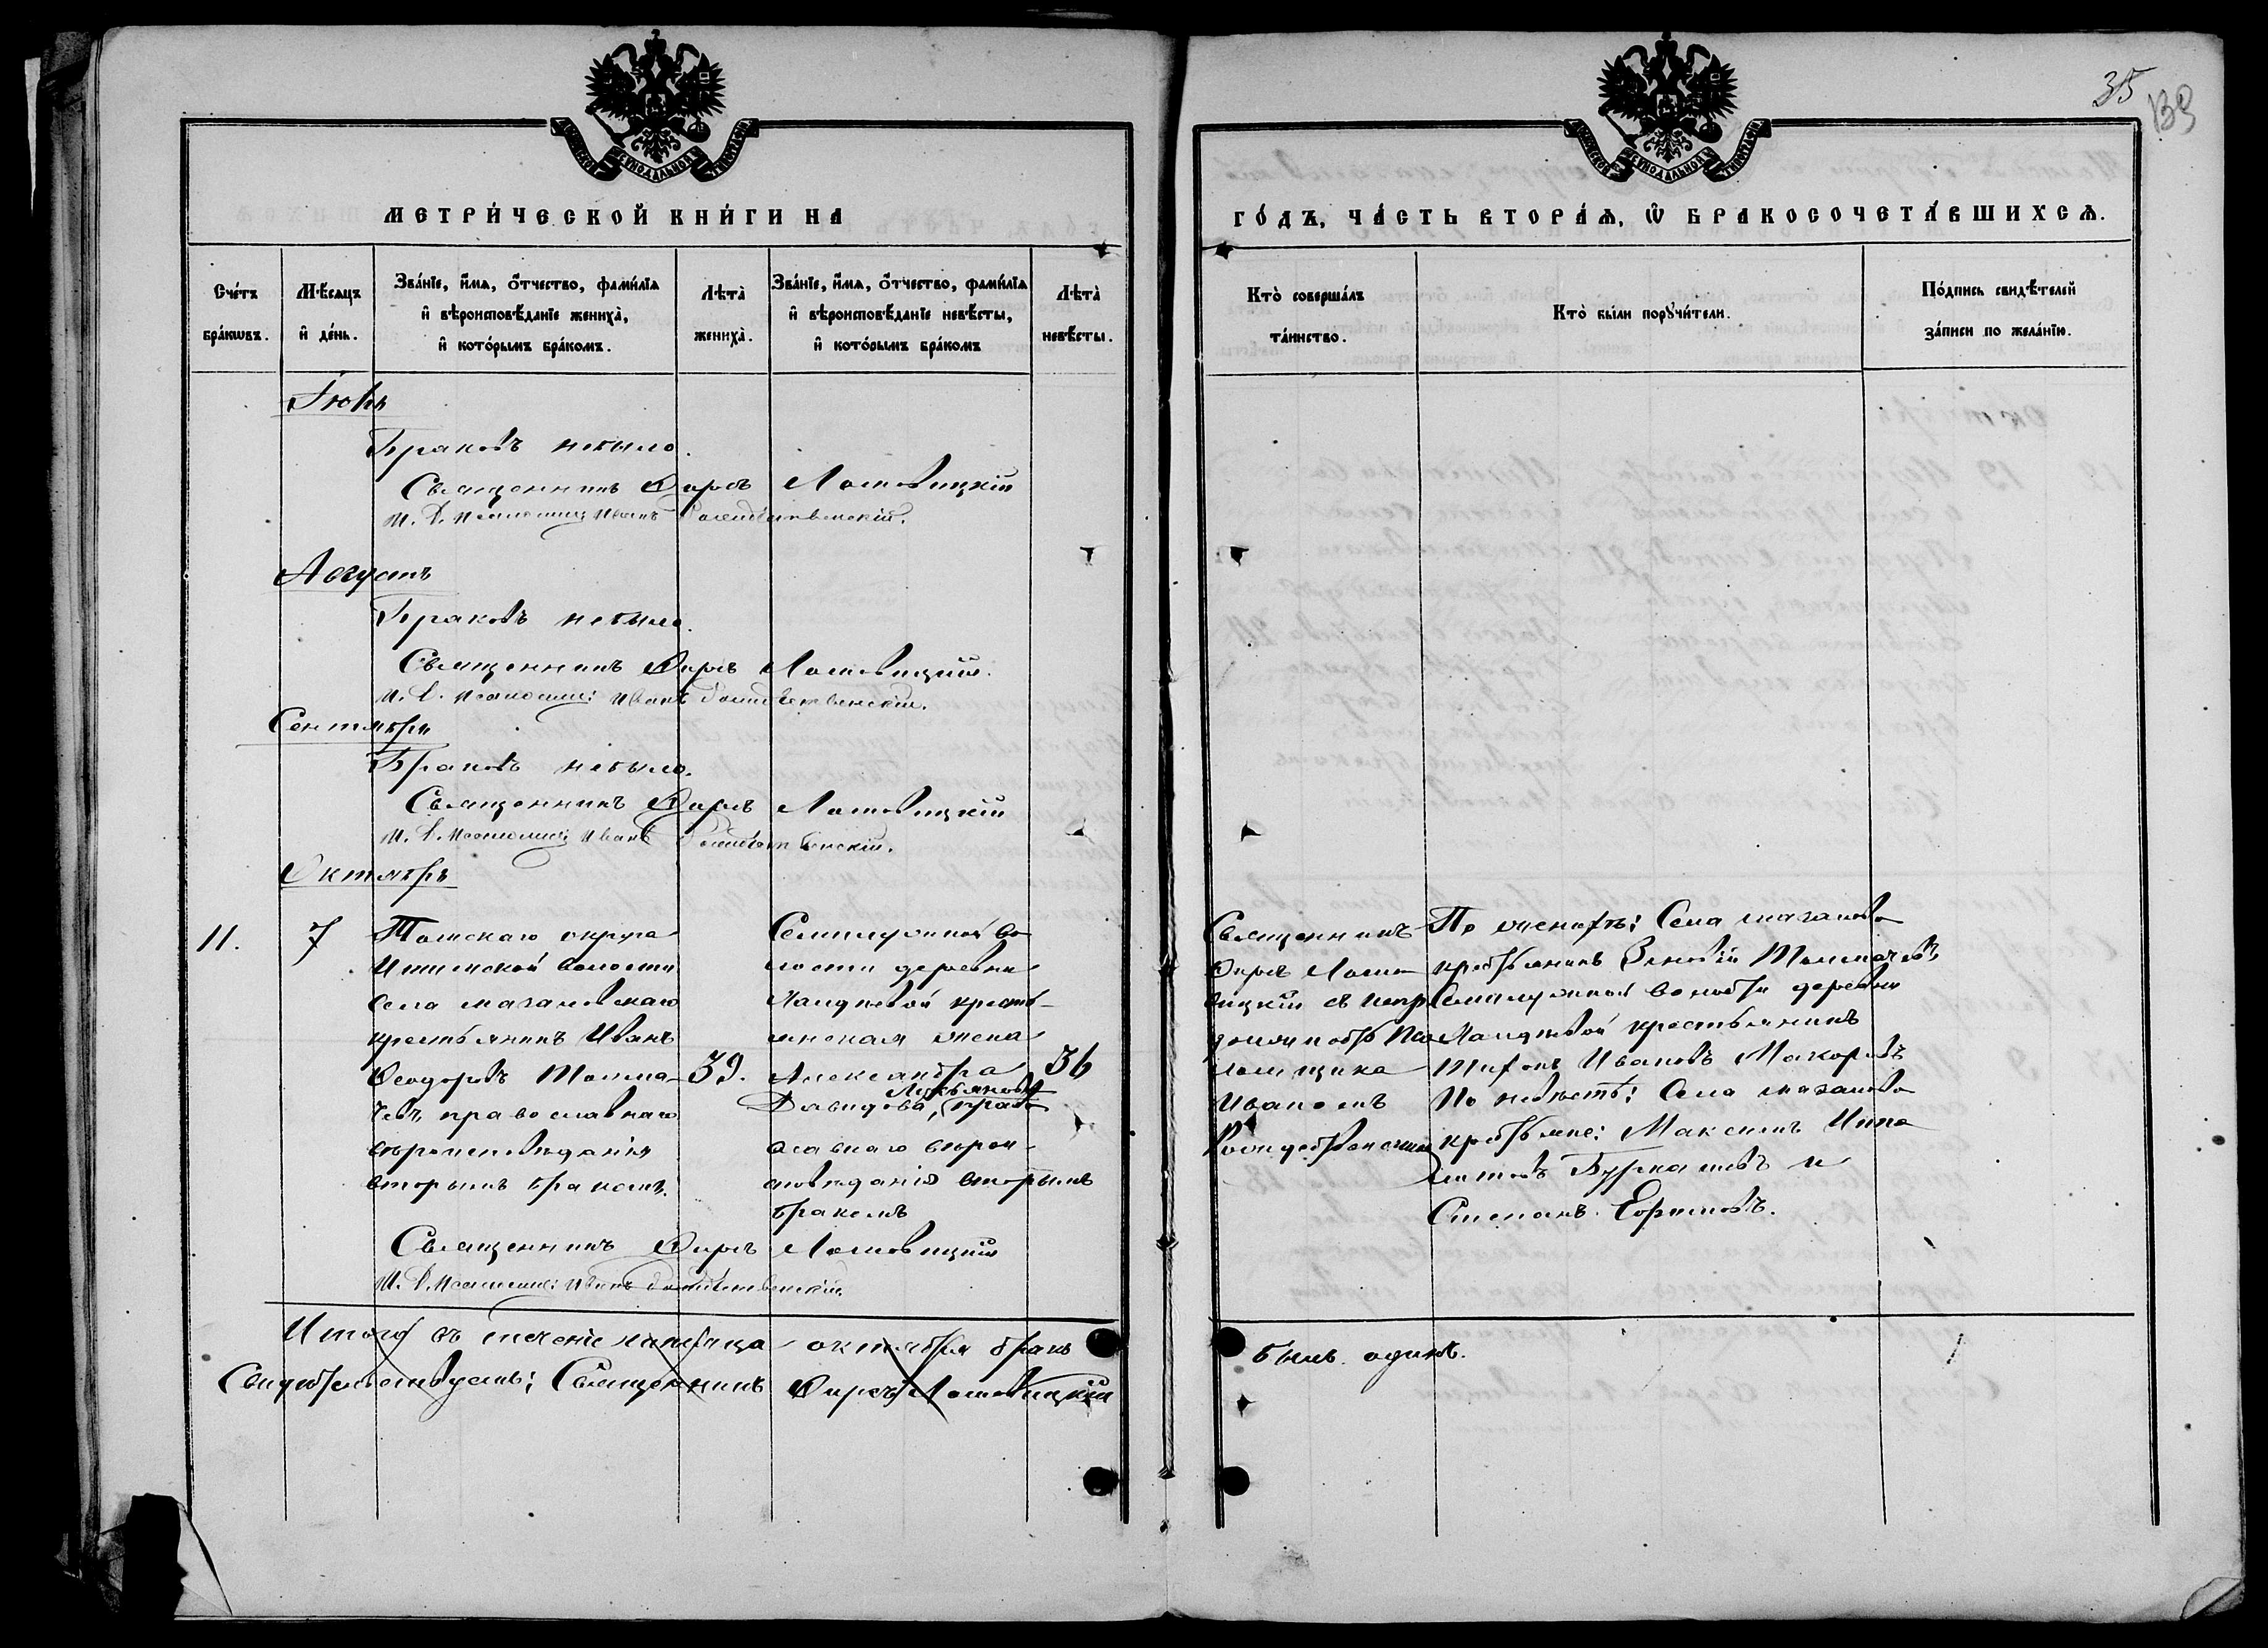 35
МЕТРИЧЕСКОЙ КНИГИ НА
ГОДЪ, ЧАСТЬ ВТОРАЯ, Ѡ БРАКОСОЧЕТАВШИХСЯ.
Счетъ браковъ.
Мѣсяцъ и день.
Званіе, имя, отчество, фамилія
и вѣроисповѣданіе жениха,
и которымъ бракомъ.
Лѣта
жениха.
Званіе, имя, отчество, фамилія
и вѣроисповѣданіе невѣсты,
и которымъ бракомъ
Лѣта
невѣсты.
Кто совершалъ
таинство.
Кто были поручители.
Подпись свидѣтелей
записи по желанію.
Браковъ небыло.
Священникъ Фирсъ Ломовицкій
Иванъ Рождественскій.
Августъ
Браковъ небыло.
Священникъ Фирсъ Ломовицкій.
Иванъ Рождественскій.
Сентябрь
Браковъ небыло.
Священникъ Фирсъ Ломовицкій
Иванъ Рождественскій.
Октябрь
11.
7
Томскаго округа
волости
Села
крестьянинъ Иванъ
Ѳеодоровъ Толма-
чевъ, православнаго
вѣроисповѣданія
вторымъ бракомъ.
39.
Семилужной во
лости деревни
кресть-
янская жена
Александра
Лукьянова
Давидова, право
славнаго вѣрои
сповѣданія вторымъ
бракомъ
36
Священникъ
Фирсъ Ломо
вицкій съ
ломщика
Иваномъ
Рождественским
По женихѣ: Села
крестьянинъ Зиновій Толмачевъ,
Семилужной волости деревни
крестьянинъ
Тихонъ Ивановъ Макаровъ
По невѣстѣ: Села
крестьяне: Максимъ Иппо
литовъ и
Степанъ Ефимовъ.
Священникъ Фирсъ Ломовицкій
Иванъ Рождественскій.
Итого въ теченіе мѣсяца октября бракъ
былъ одинъ.
1
Свидѣтельствуемъ: Священникъ Фирсъ Ломовицкій